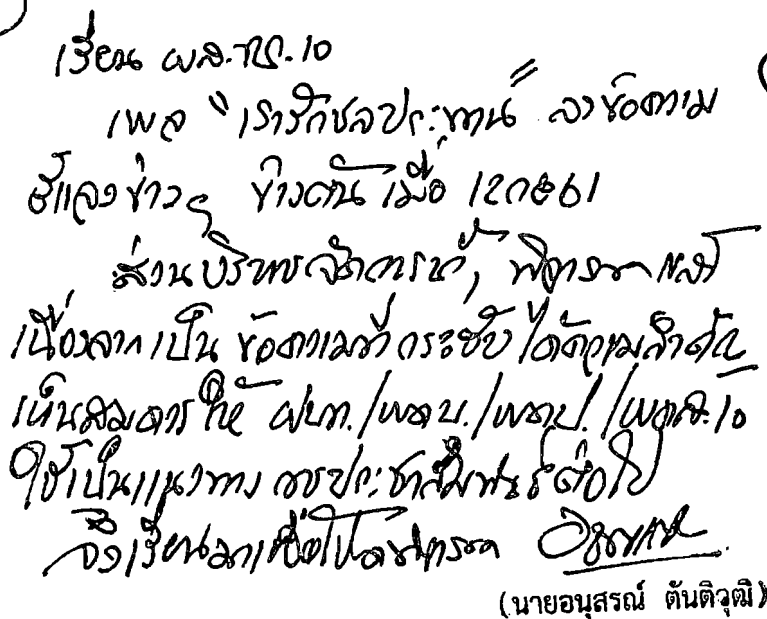 เรียน ผส.ชป.10
เพจ "เรารักชลประทาน" ลงข้อความ
ชี้แจงข่าวฯ ข้างต้น เมื่อ 12กย61
ส่วนบริหารจัดการน้ำฯ พิจารณาแล้ว
เนื่องจากเป็น ข้อความที่ กระชับ ได้ความสำคัญ
เห็นสมควร ให้ ฝบท./ /10
ใช้เป็นแนวทาง การประชาสัมพันธ์ต่อไป
จึงเรียนมาเพื่อโปรดพิจารณา
(นายอนุสรณ์ ตันติวุฒิ)